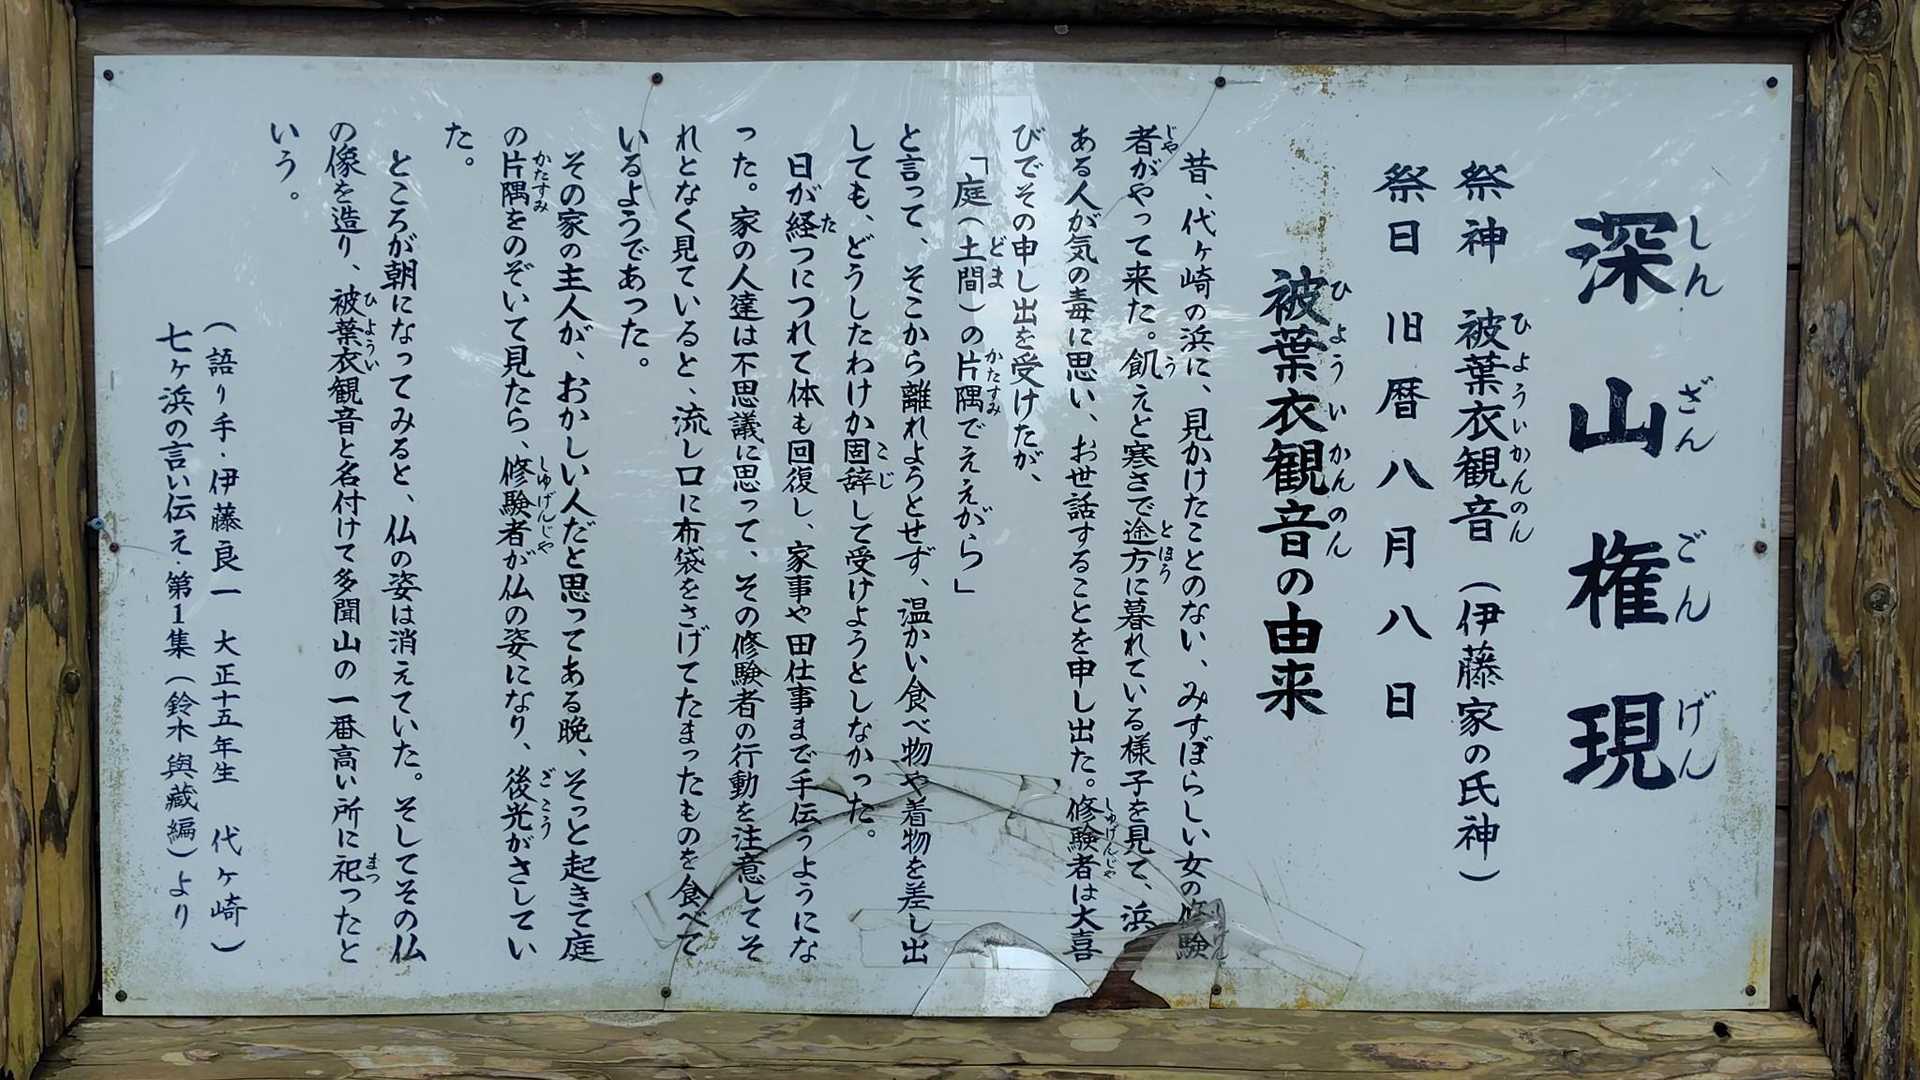 深山権現
しんざんごんげん
祭神 被葉衣観音(伊藤家の氏神)
ひよういかんのん
祭日 旧暦八月八日
被葉衣観音の由来
ひよういかんのん
昔、代ヶ崎の浜に、見かけたことのない、みすぼらしい女の修験
者がやって来た。飢えと寒さで途方に暮れている様子を見て、浜
じや う とほう
ある人が気の毒に思い、お世話することを申し出た。修験者は大喜
しゆげんじや
びでその申し出を受けたが、
「庭(土間)の片隅でええがら」
どま かたすみ
と言って、そこから離れようとせず、温かい食べ物や着物を差し出
しても、どうしたわけか固辞して受けようとしなかった。
こじ
日が経つにつれて体も回復し、家事や田仕事まで手伝うようにな
た
った。家の人達は不思議に思って、その修験者の行動を注意してそ
れとなく見ていると、流し口に布袋をさげてたまったものを食べて
いるようであった。
その家の主人が、おかしい人だと思ってある晩、そっと起きて庭
の片隅をのぞいて見たら、修験者が仏の姿になり、後光がさしてい
かたすみ しゆげんじや ごこう
た。
ところが朝になってみると、仏の姿は消えていた。そしてその仏
の像を造り、被葉衣観音と名付けて多聞山の一番高い所に祀ったと
ひようい まつ
いう。
(語り手・伊藤良一 大正十五年生 代ヶ崎)
七ヶ浜の言い伝え・第1集(鈴木與藏編)より